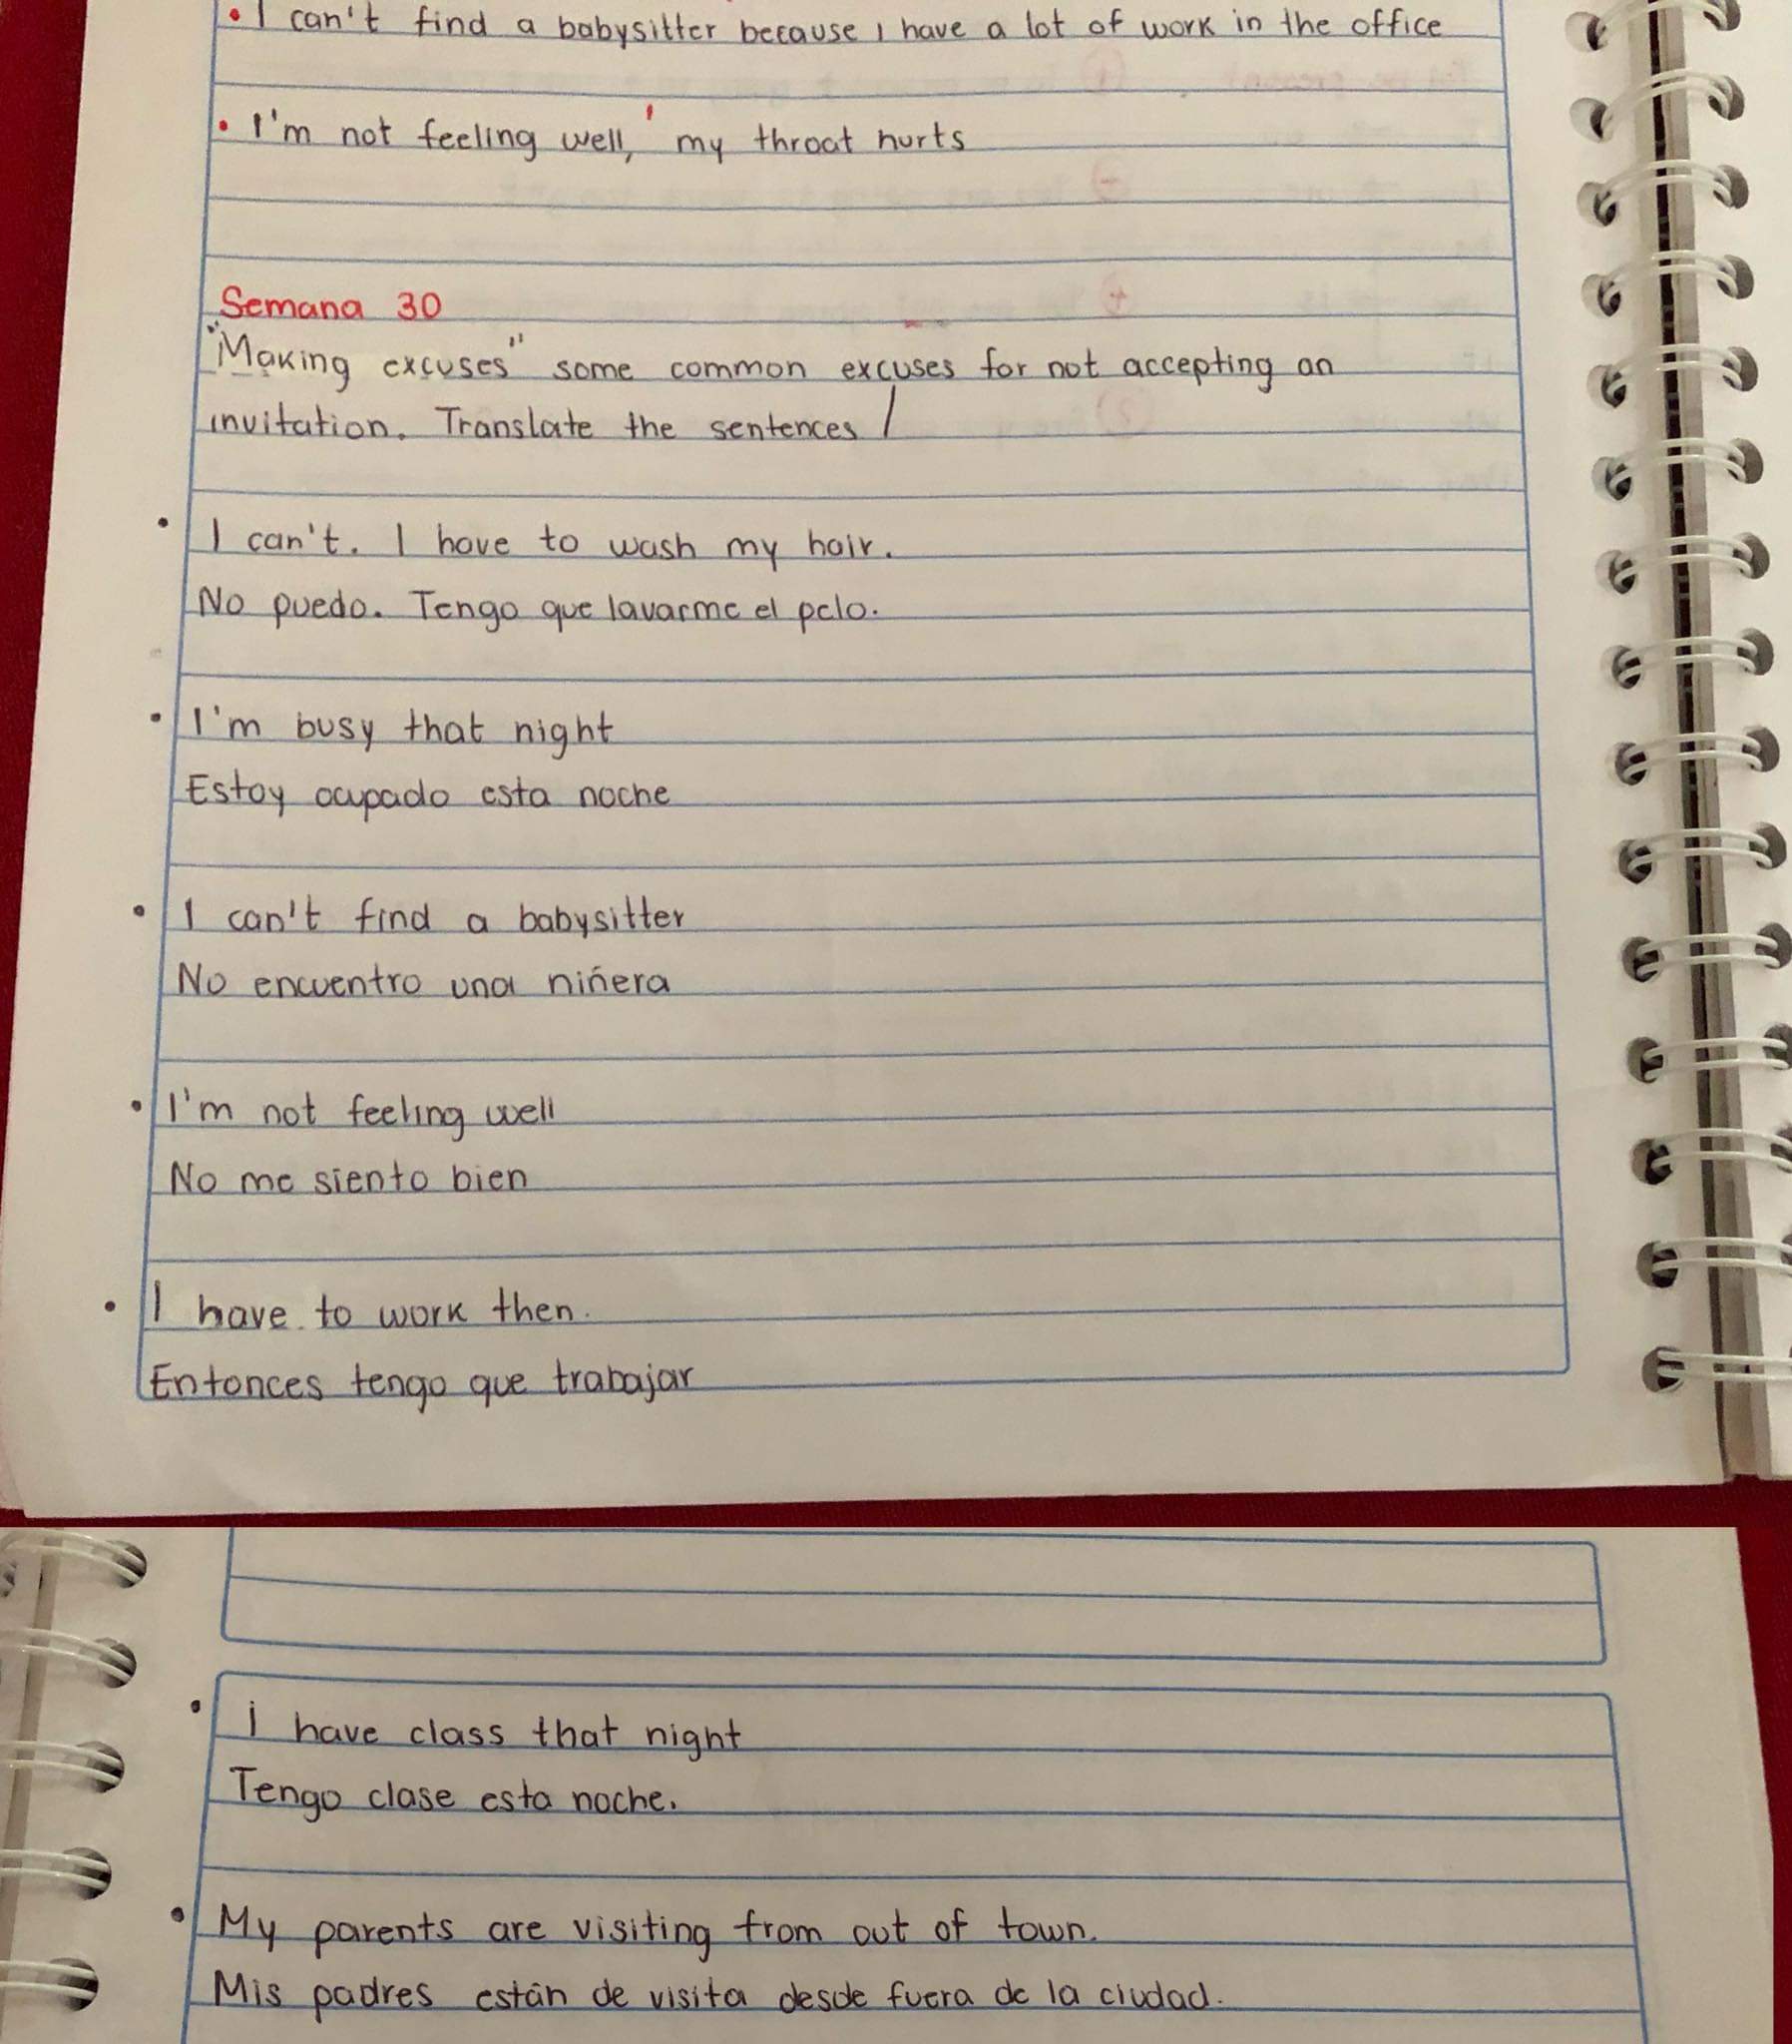 • I can't find a babysitter because I have a lot of work in the office
• I'm not feeling well, my throat hurts
Semana 30
"Making excuses" some common excuses for not accepting an
invitation. Translate the sentences /
• I can't. I have to wash my hair.
No puedo. Tengo que lavarme el pelo.
• I'm busy that night
Estoy ocupado esta noche
• I can't find a babysitter
No encuentro una niñera
• I'm not feeling well
No me siento bien
• I have to work then.
Entonces tengo que trabajar
• I have class that night
Tengo clase esta noche.
• My parents are visiting from out of town.
Mis padres están de visita desde fuera de la ciudad.